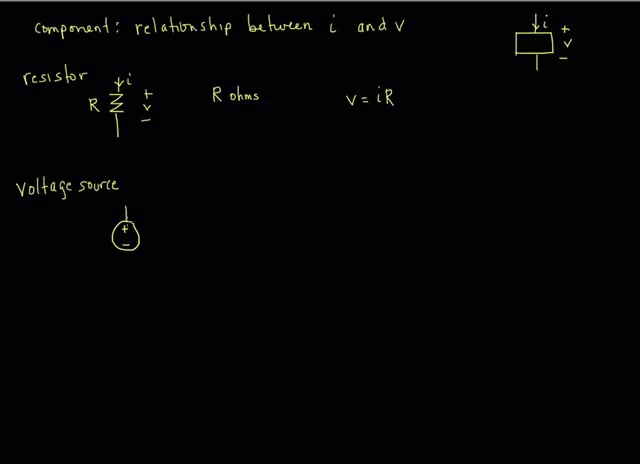 component: relationship between i and v
i
+
v
−
resistor
i
R
+
v
−
R ohms
v = iR
voltage source
+
−